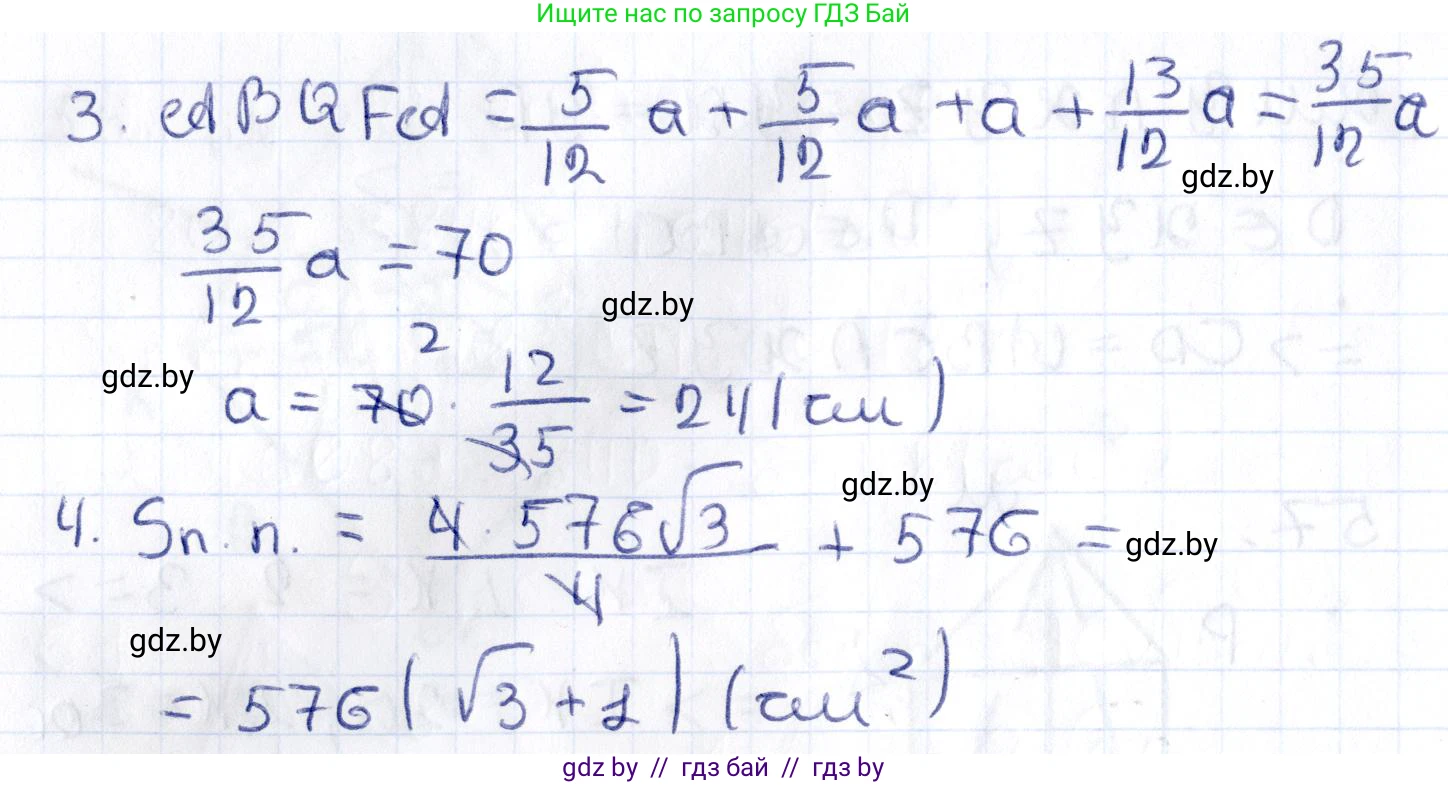 Ищите нас по запросу ГДЗ Бай
3. = 5/12 a + 5/12 a + a + 13/12 a = 35/12 a
gdz.by
35/12 a = 70
gdz.by
gdz.by
a = 70 2 · 12/35 = 24 (см)
gdz.by
4. Sп.п. = 4·576√3/4 + 576 =
gdz.by
gdz.by
= 576(√3+1) (см²)
gdz by // гдз бай // гдз by